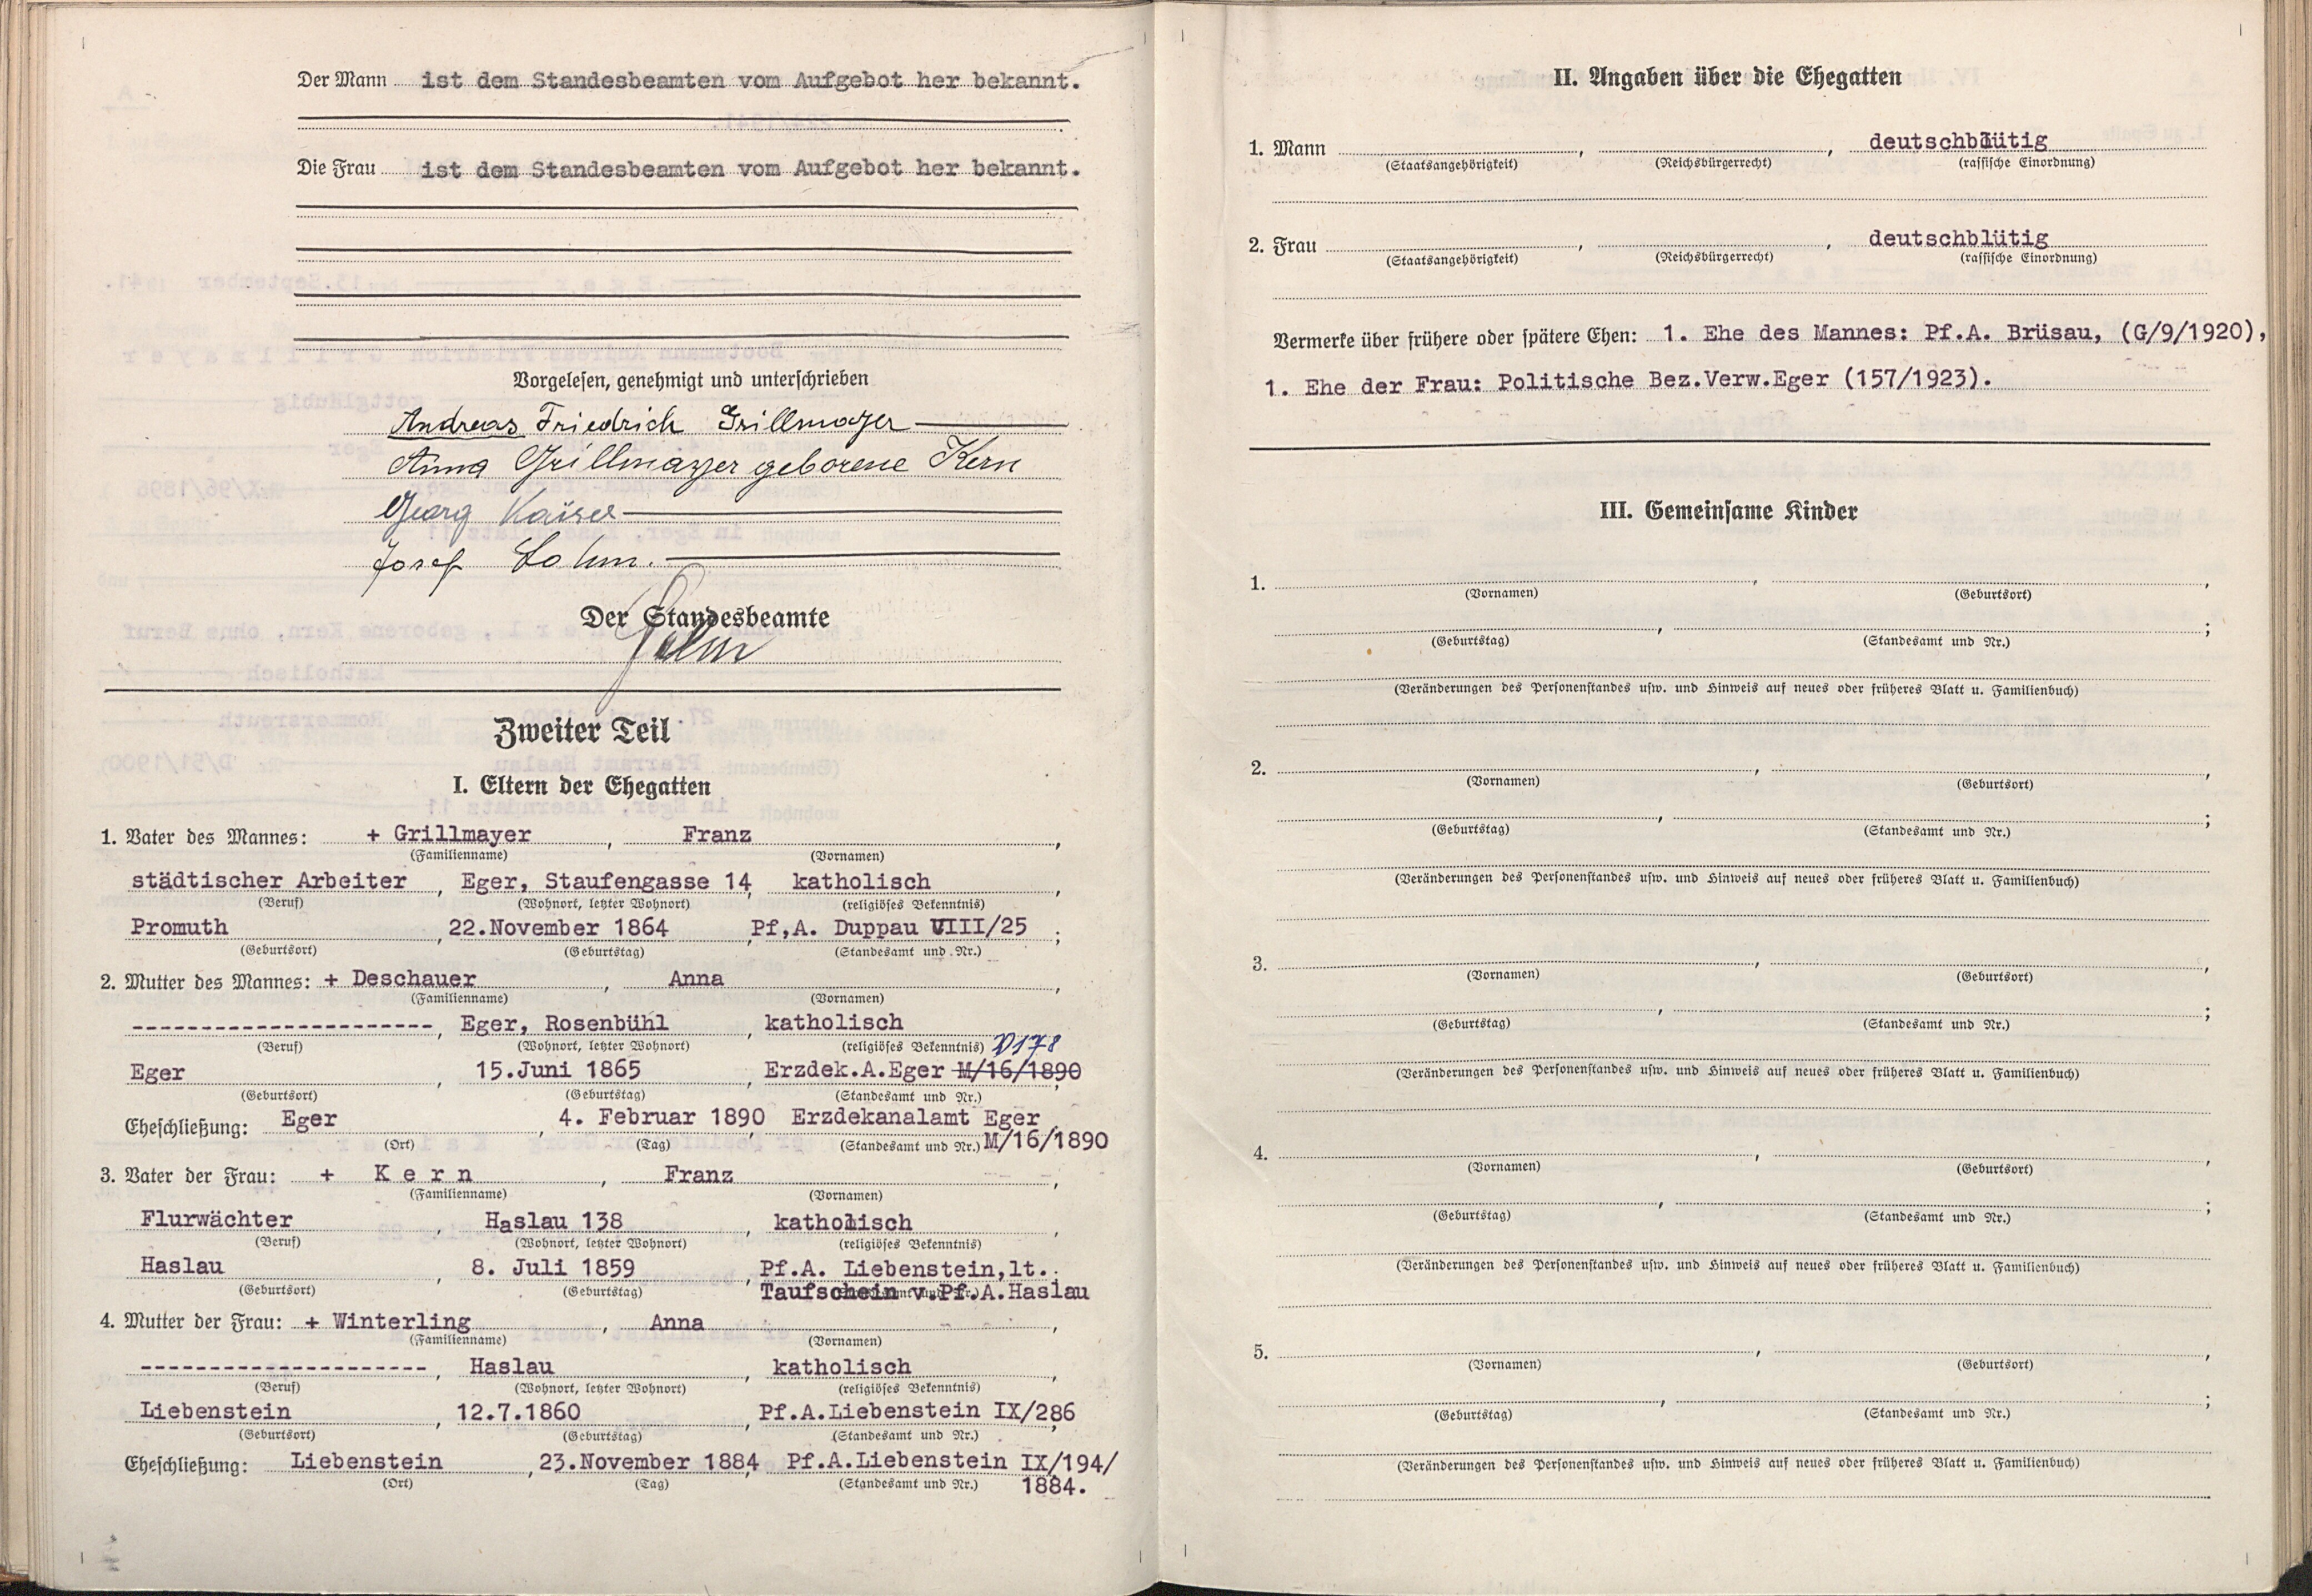 Der Mann ist dem Standesbeamten vom Aufgebot her bekannt.
Die Frau ist dem Standesbeamten vom Aufgebot her bekannt.
Vorgelesen, genehmigt und unterschrieben
Andreas Friedrich Grillmayer
Anna Grillmayer geborene Kern
Georg Kaiser
Josef Lohm.
Der Standesbeamte
Zweiter Teil
I. Eltern der Ehegatten
1. Vater des Mannes: + Grillmayer, Franz,
(Familienname) (Vornamen)
städtischer Arbeiter, Eger, Staufengasse 14, katholisch,
(Beruf) (Wohnort, letzter Wohnort) (religiöses Bekenntnis)
Promuth, 22.November 1864, Pf,A. Duppau VIII/25;
(Geburtsort) (Geburtstag) (Standesamt und Nr.)
2. Mutter des Mannes: + Deschauer, Anna,
(Familienname) (Vornamen)
----------------------, Eger, Rosenbühl, katholisch
(Beruf) (Wohnort, letzter Wohnort) (religiöses Bekenntnis)
Eger, 15.Juni 1865, Erzdek.A.Eger M/16/1890
(Geburtsort) (Geburtstag) (Standesamt und Nr.)
Eheschließung: Eger, 4. Februar 1890, Erzdekanalamt Eger
(Ort) (Tag) (Standesamt und Nr.) M/16/1890
3. Vater der Frau: + K e r n, Franz,
(Familienname) (Vornamen)
Flurwächter, Haslau 138, katholisch,
(Beruf) (Wohnort, letzter Wohnort) (religiöses Bekenntnis)
Haslau, 8. Juli 1859, Pf.A. Liebenstein,lt.
(Geburtsort) (Geburtstag) Taufschein v.Pf.A.Haslau
4. Mutter der Frau: + Winterling, Anna,
(Familienname) (Vornamen)
---------------------, Haslau, katholisch,
(Beruf) (Wohnort, letzter Wohnort) (religiöses Bekenntnis)
Liebenstein, 12.7.1860, Pf.A.Liebenstein IX/286
(Geburtsort) (Geburtstag) (Standesamt und Nr.)
Eheschließung: Liebenstein, 23.November 1884, Pf.A.Liebenstein IX/194/
(Ort) (Tag) (Standesamt und Nr.) 1884.
II. Angaben über die Ehegatten
1. Mann , , deutschblütig
(Staatsangehörigkeit) (Reichsbürgerrecht) (rassische Einordnung)
2. Frau , , deutschblütig
(Staatsangehörigkeit) (Reichsbürgerrecht) (rassische Einordnung)
Vermerke über frühere oder spätere Ehen: 1. Ehe des Mannes: Pf.A. Brüsau, (G/9/1920),
1. Ehe der Frau: Politische Bez.Verw.Eger (157/1923).
III. Gemeinsame Kinder
1. , ,
(Vornamen) (Geburtsort)
, ;
(Geburtstag) (Standesamt und Nr.)
(Veränderungen des Personenstandes usw. und Hinweis auf neues oder früheres Blatt u. Familienbuch)
2. , ,
(Vornamen) (Geburtsort)
, ;
(Geburtstag) (Standesamt und Nr.)
(Veränderungen des Personenstandes usw. und Hinweis auf neues oder früheres Blatt u. Familienbuch)
3. , ,
(Vornamen) (Geburtsort)
, ;
(Geburtstag) (Standesamt und Nr.)
(Veränderungen des Personenstandes usw. und Hinweis auf neues oder früheres Blatt u. Familienbuch)
4. , ,
(Vornamen) (Geburtsort)
, ;
(Geburtstag) (Standesamt und Nr.)
(Veränderungen des Personenstandes usw. und Hinweis auf neues oder früheres Blatt u. Familienbuch)
5. , ,
(Vornamen) (Geburtsort)
, ;
(Geburtstag) (Standesamt und Nr.)
(Veränderungen des Personenstandes usw. und Hinweis auf neues oder früheres Blatt u. Familienbuch)